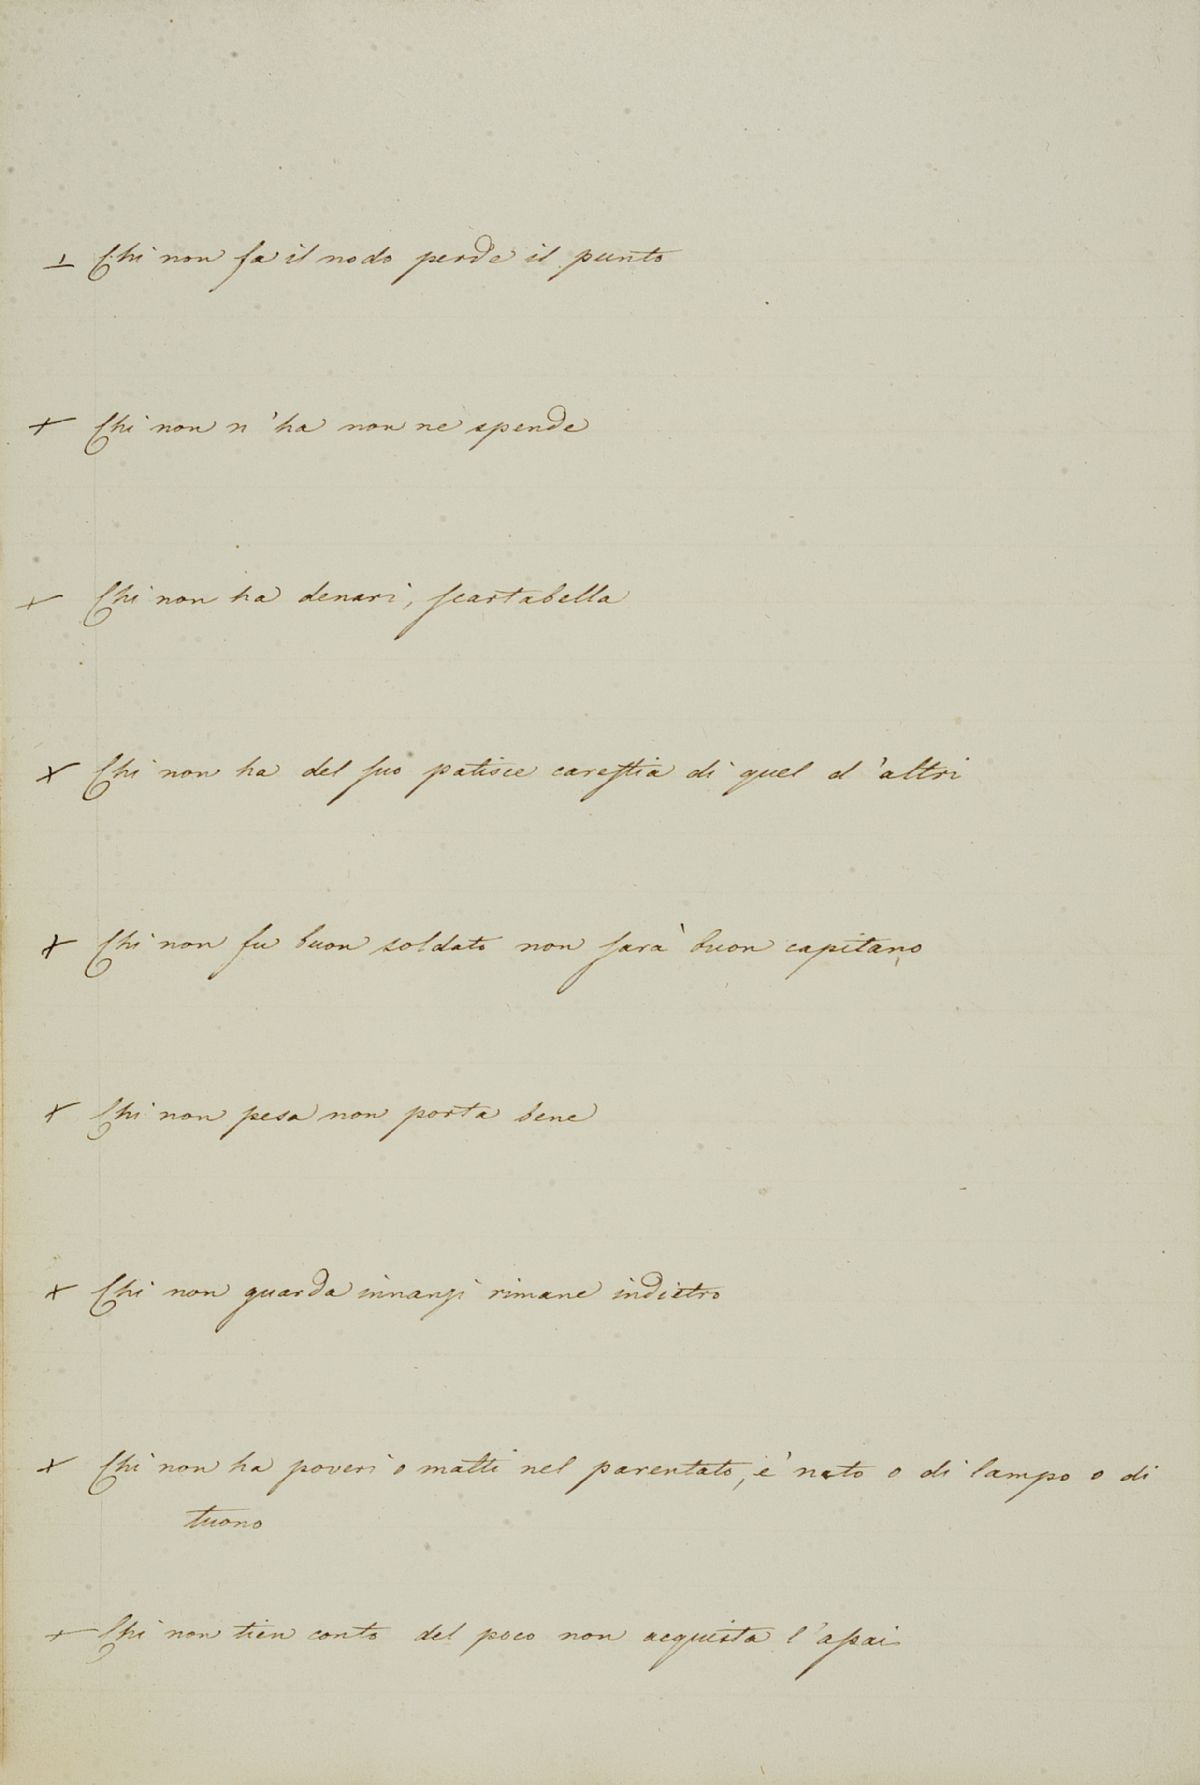 + Chi non fa il nodo perde il punto
+ Chi non n'ha non ne spende
+ Chi non ha denari, scartabella
+ Chi non ha del suo patisce carestia di quel d'altri
+ Chi non fu buon soldato non sarà buon capitano
+ Chi non pesa non porta bene
+ Chi non guarda innanzi rimane indietro
+ Chi non ha poveri o matti nel parentato, è nato o di lampo o di
tuono
+ Chi non tien conto del poco non acquista l'assai